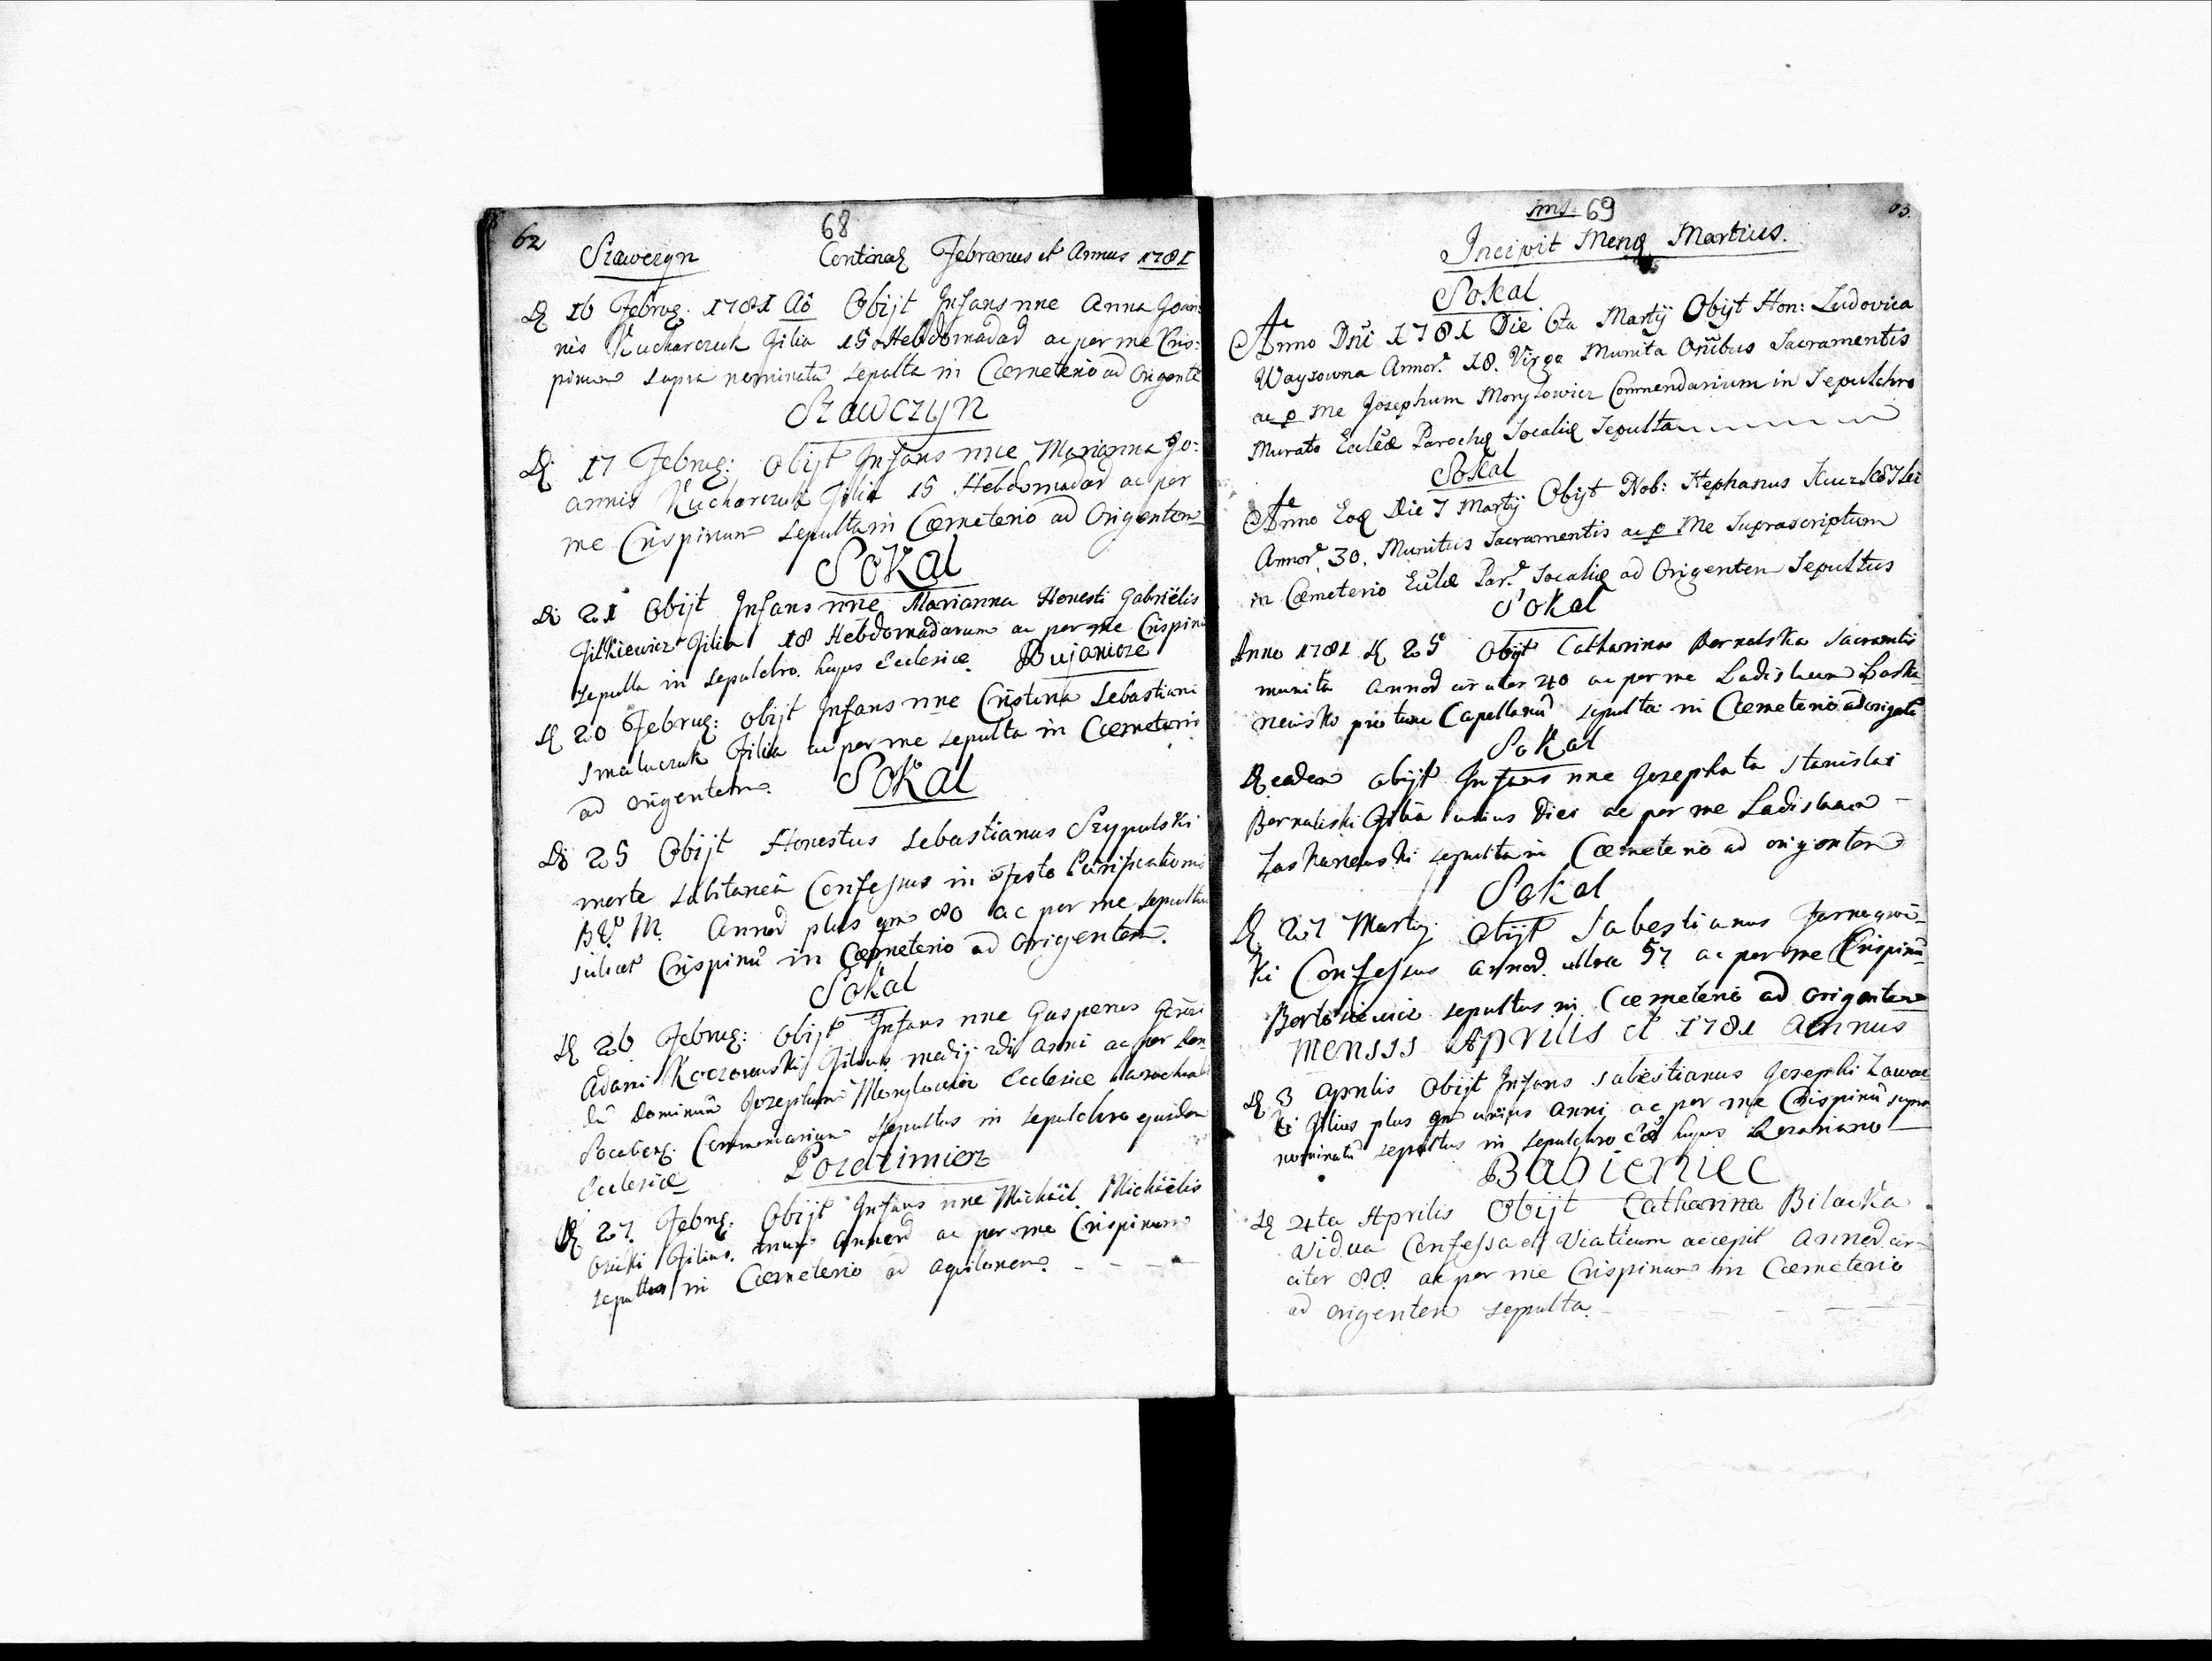 62
68
Szawczyn Continaꝗ Februarius et Annus 1781
Dꝗ 16 Februꝗ. 1781 Aō Obijt Infans nne Anna Joan
nis Kucharczuk Filia 15 Hebdomadad ac per me Cris:
pinum supra nominatū sepulta in Cœmeterio ad Origentē
Szawczyn
Dꝗ 17 Februꝗ: Obijt Infans nne Marianna Jo:
annis Kucharczuk Filia 15 Hebdomadad ac per
me Crispinum sepulta in Cœmeterio ad Origentem
Sokal
Di 21 Obijt Infans nne Marianna Honesti Gabriëlis
Filkiewicz Filia 18 Hebdomadarum ac per me Crispinū
sepulta in sepulchro hujus Ecclesiæ. Bujanicze
Dꝗ 20 Februꝗ: obijt Infans nne Cristina Sebastiani
Smaluczuk Filia ac per me sepulta in Cœmeterio
ad origentem.
Sokal
Di 25 Obijt Honestus Sebastianus Szypulski
morte subitaneâ Confessus in Festo Purificationis
B. V. M. Annod plus qm 80 ac per me sepultus
scilicet Crispinū in Cœmeterio ad Origentem.
Sokal
Dꝗ 26 Februꝗ: Obijt Infans nne Gasperus
Adami Koczowski Filius medij anni ac per
Dominum Jozephum Morylowicz Ecclesiæ Parochial
Socaliens. Commendarium sepultus in sepulchro ejusdem
Ecclesiæ
Poturzimierz
Dꝗ 27. Februꝗ: Obijt Infans nne Michäel Michäelis
Filius. trium Annord ac per me Crispinum
sepultus in Cœmeterio ad aquilonem.
ms. 69
63.
Incipit Mensꝗ Martius.
Sokal
Anno Dni 1781 Die 6ta Martÿ Obijt Hon: Ludovica
Waysowna Annor. 18. Virgo Munita Oñibus Sacramentis
ac p me Josephum Morylowicz Commendarium in Sepulchro
Murato Eccleæ Parochꝗ Socaliꝗ Sepulta
Sokal
Anno Eoꝗ Die 7 Martÿ Obijt Nob: Stephanus
Annor. 30. Munitus Sacramentis ac p Me Suprascriptum
in Cœmeterio Eccleæ Par. Socaliꝗ ad Origentem Sepultus
Sokal
Anno 1781 Dꝗ 25 Obijt Catharina Bernalska Sacramentis
munita Annod circiter 40 ac per me Ladislaum
pro tunc Capellanū sepulta in Cœmeterio ad origentē
Sokal
Dꝗ eadem obijt Infans nne Jozephata Stanislai
Bernalski Filia unius Diei ac per me Ladislaum
Laskarewski sepulta in Cœmeterio ad origentem
Sokal
Dꝗ 27 Martÿ Obijt Sabestianus
ki Confessus annod. ultra 57 ac per me Crispinū
sepultus in Cœmeterio ad Origentem
Mensis Aprilis et 1781 Annus
Dꝗ 3 Aprilis Obijt Infans Sabestianus Jozephi
ki Filius plus qm unius anni ac per me Crispinū supra
nominatū sepultus in sepulchro hujus
Babieniec
Dꝗ 4ta Aprilis Obijt Catharina Bilacka
Vidua Confessa et Viaticum accepit Annod cir-
citer 88 ac per me Crispinum in Cœmeterio
ad origentem sepulta.